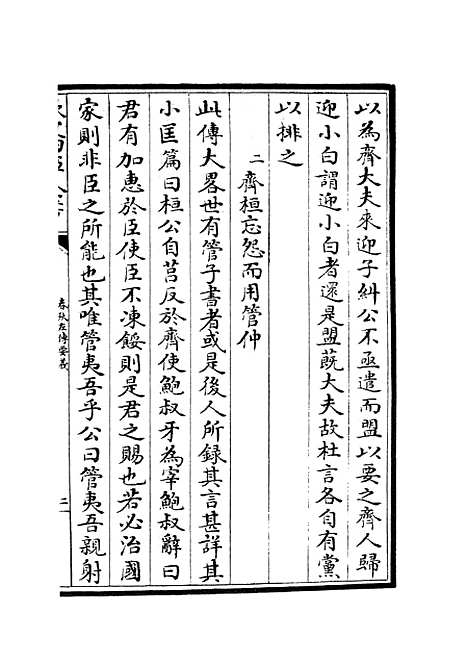 以為齊大夫來迎子糾公不亟遣而盟以要之齊人歸
迎小白謂迎小白者還是盟蔇大夫故杜言各自有黨
以排之
二齊桓忘怨而用管仲
此傳大畧世有管子書者或是後人所錄其言甚詳其
小匡篇曰桓公自莒反於齊使鮑叔牙為宰鮑叔辭曰
君有加惠於臣使臣不凍餒則是君之賜也若必治國
家則非臣之所能也其唯管夷吾乎公曰管夷吾親射
春秋左傳要義